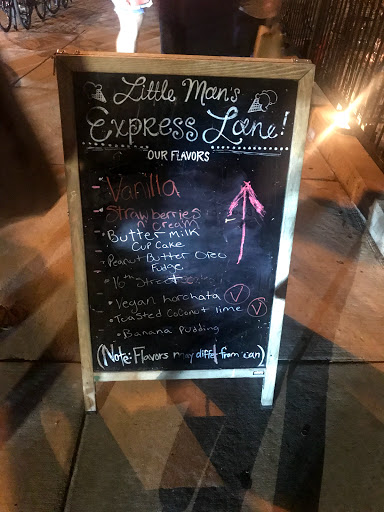 Little Man's
Express Lane!
OUR FLAVORS
- Vanilla
- Strawberries
n cream
• Butter milk
Cup Cake
• Peanut Butter Oreo
Fudge
• 16th Street
• Vegan horchata V
• Toasted Coconut lime V
• Banana Pudding
(Note: Flavors may differ from can)